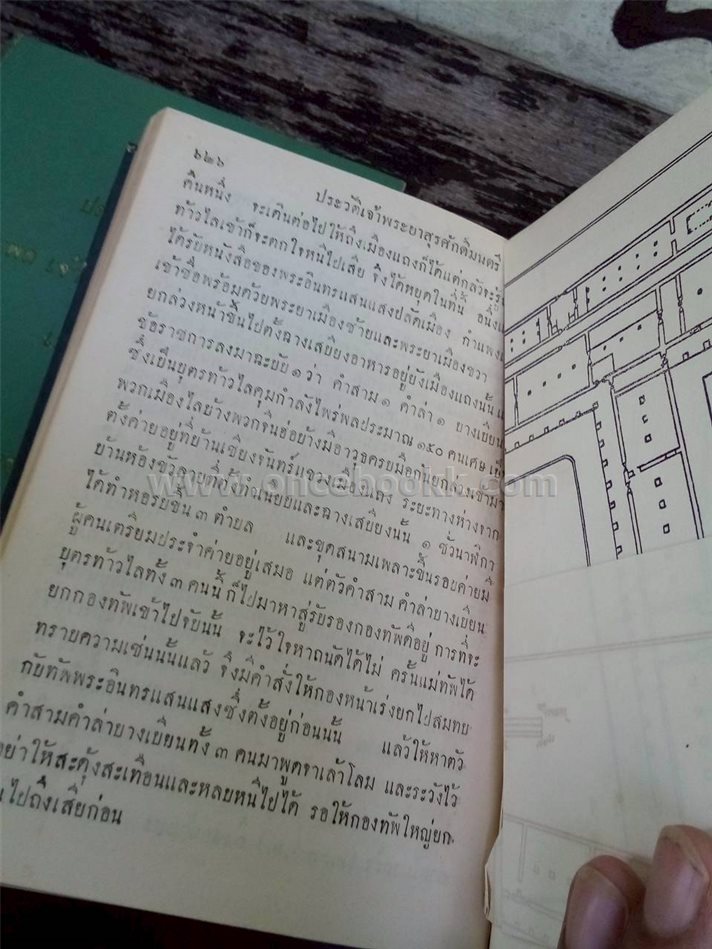 ๖๒๖
ประวัติเจ้าพระยาสุรศักดิ์มนตรี
คืนหนึ่ง จะเดินต่อไปให้ถึงเมืองแถงก็ได้แต่กลัวจะรู้
ท้าวไลเข้าก็จะตกใจหนีไปเสีย จึงได้หยุดในที่นี้ อนึ่ง
ได้รับหนังสือของพระอินทรแสนแสงปลัดเมือง กำแพง
เข้าชื่อพร้อมด้วยพระยาเมืองซ้ายและพระยาเมืองขวา
ยกล่วงหน้าขึ้นไปตั้งฉางเสบียงอาหารอยู่ยังเมืองแถงนั้น
ข้อราชการลงมาฉะบับ ๑ ว่า คำสาม ๑ คำล่า ๑ บางเบียน
ซึ่งเป็นบุตรท้าวไลคุมกำลังไพร่พลประมาณ ๑๕๐ คนเศษ
พวกเมืองไลบ้างพวกจีนฮ่อบ้างมีอาวุธครบมือกัน
ตั้งค่ายอยู่ที่บ้านเชียงจันทร์แขวงเมืองแถง ระยะทางห่างจาก
บ้านห้องขัวลายที่ตั้งทำเนียบและฉางเสบียงนั้น ๑ ชั่วนาฬิกา
ได้ทำหอรบขึ้น ๓ ตำบล และขุดสนามเพลาะขึ้นรอบค่ายมี
ผู้คนเตรียมประจำค่ายอยู่เสมอ แต่ตัวคำสาม คำล่าบางเบียน
บุตรท้าวไลทั้ง ๓ คนนี้ ก็ไปมาหาสู่รับรองกองทัพดีอยู่ การที่จะ
ยกกองทัพเข้าไปจับนั้น จะไว้ใจหาถนัดได้ไม่ ครั้นแม่ทัพได้
ทราบความเช่นนั้นแล้ว จึงมีคำสั่งให้กองหน้าเร่งยกไปสมทบ
กับทัพพระอินทรแสนแสงซึ่งตั้งอยู่ก่อนนั้น แล้วให้หาตัว
คำสามคำล่าบางเบียนทั้ง ๓ คนมาพูดจาเล้าโลม และระวังไว้
อย่าให้สะดุ้งสะเทือนและหลบหนีไปได้ รอให้กองทัพใหญ่ยก
ไปถึงเสียก่อน
www.oncebookk.com